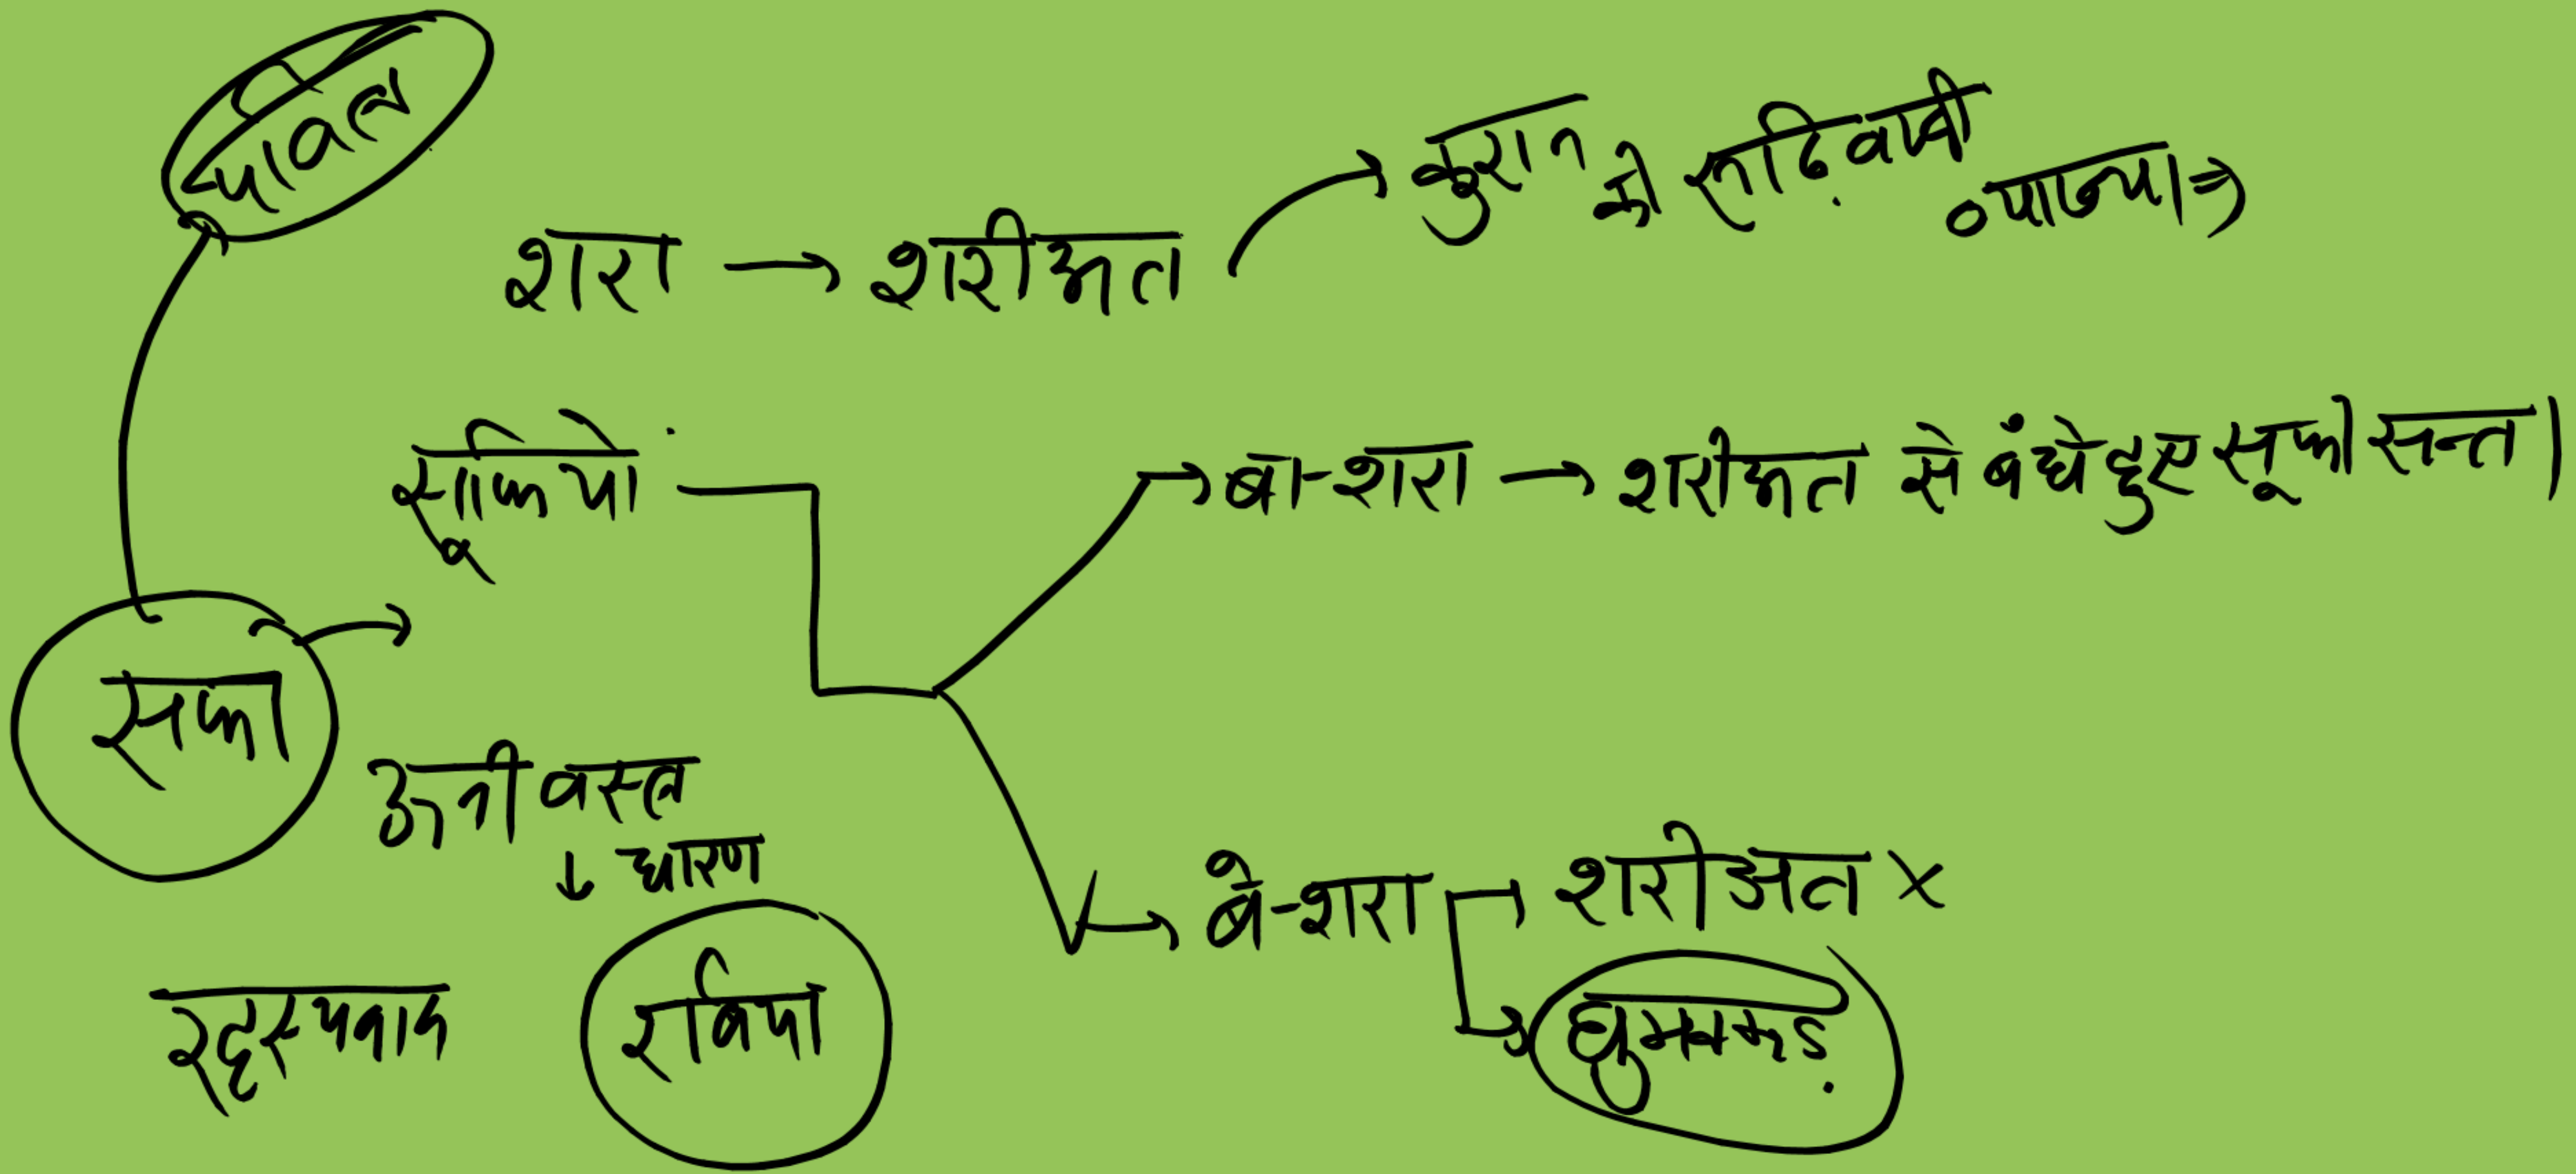 शरा → शरीअत → कुरान की रूढ़िवादी व्याख्या ⇒
सूफियों
बा-शरा → शरीअत से बंधे हुए सूफी सन्त।
सफा
ऊनी वस्त्र
↓ धारण
बे-शरा → शरीअत ×
घुमक्कड़
रहस्यवाद
रबिया